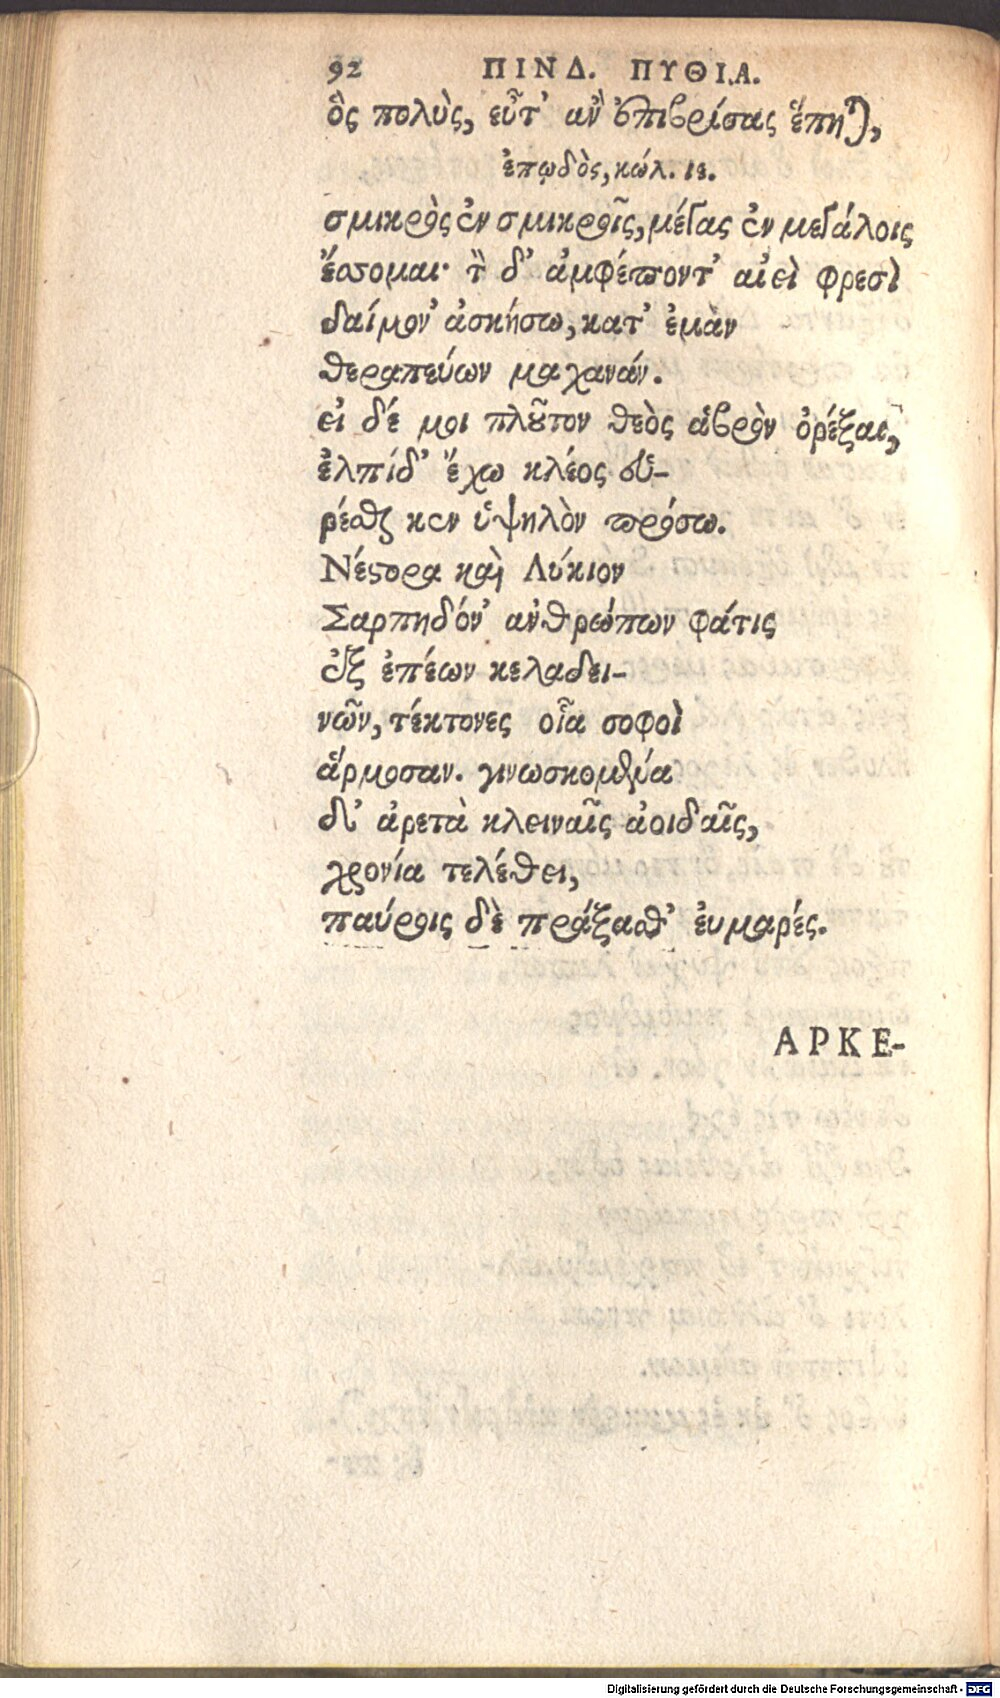 92 ΠΙΝΔ. ΠΥΘΙΑ.
ὃς πολὺς, εὖτ' ἂν ἐπιβρίσας ἕπηται,
ἐπῳδὸς, κώλ. ιε.
σμικρὸς ἐν σμικροῖς, μέγας ἐν μεγάλοις
ἔσσομαι· τὸν δ' ἀμφέποντ' αἰεὶ φρεσὶ
δαίμον' ἀσκήσω, κατ' ἐμὰν
θεραπεύων μαχανάν.
εἰ δέ μοι πλοῦτον θεὸς ἁβρὸν ὀρέξαι,
ἐλπίδ' ἔχω κλέος εὑ-
ρέσθαι κεν ὑψηλὸν πρόσω.
Νέστορα καὶ Λύκιον
Σαρπηδόν' ἀνθρώπων φάτις
ἐξ ἐπέων κελαδει-
νῶν, τέκτονες οἷα σοφοὶ
ἅρμοσαν. γινωσκόμεθα
δι' ἀρετὰ κλειναῖς ἀοιδαῖς,
χρονία τελέθει,
παύροις δὲ πράξασθ' ἐυμαρές.
ΑΡΚΕ-
Digitalisierung gefördert durch die Deutsche Forschungsgemeinschaft - DFG